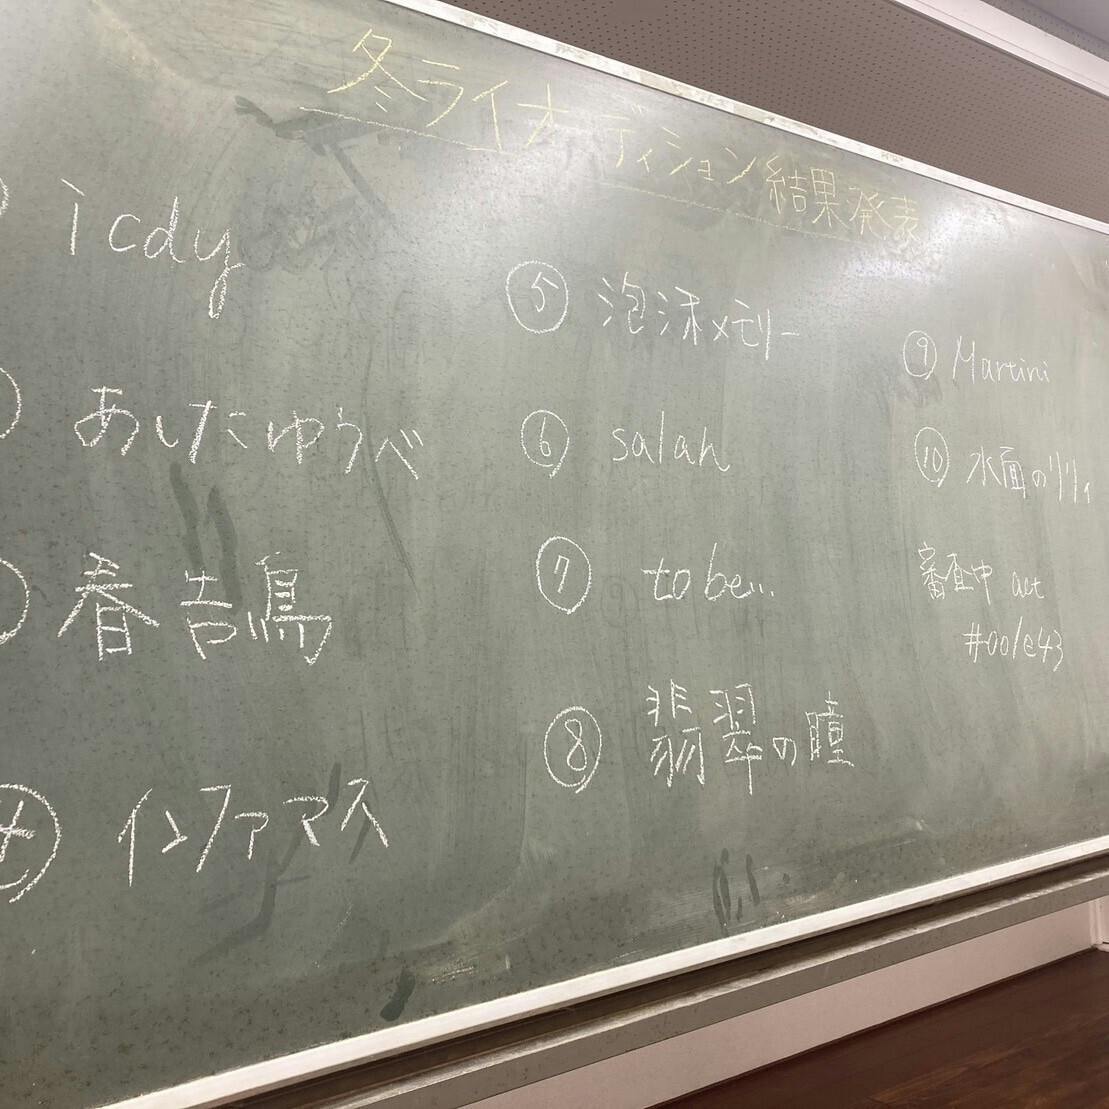 冬ライオーディション結果発表
icdy
あしたゆうべ
春告鳥
④ インファマス
⑤ 泡沫メモリー
⑥ salah
⑦ to be...
⑧ 翡翠の瞳
⑨ Martini
⑩ 水面のリリィ
審査中 act
#001e43